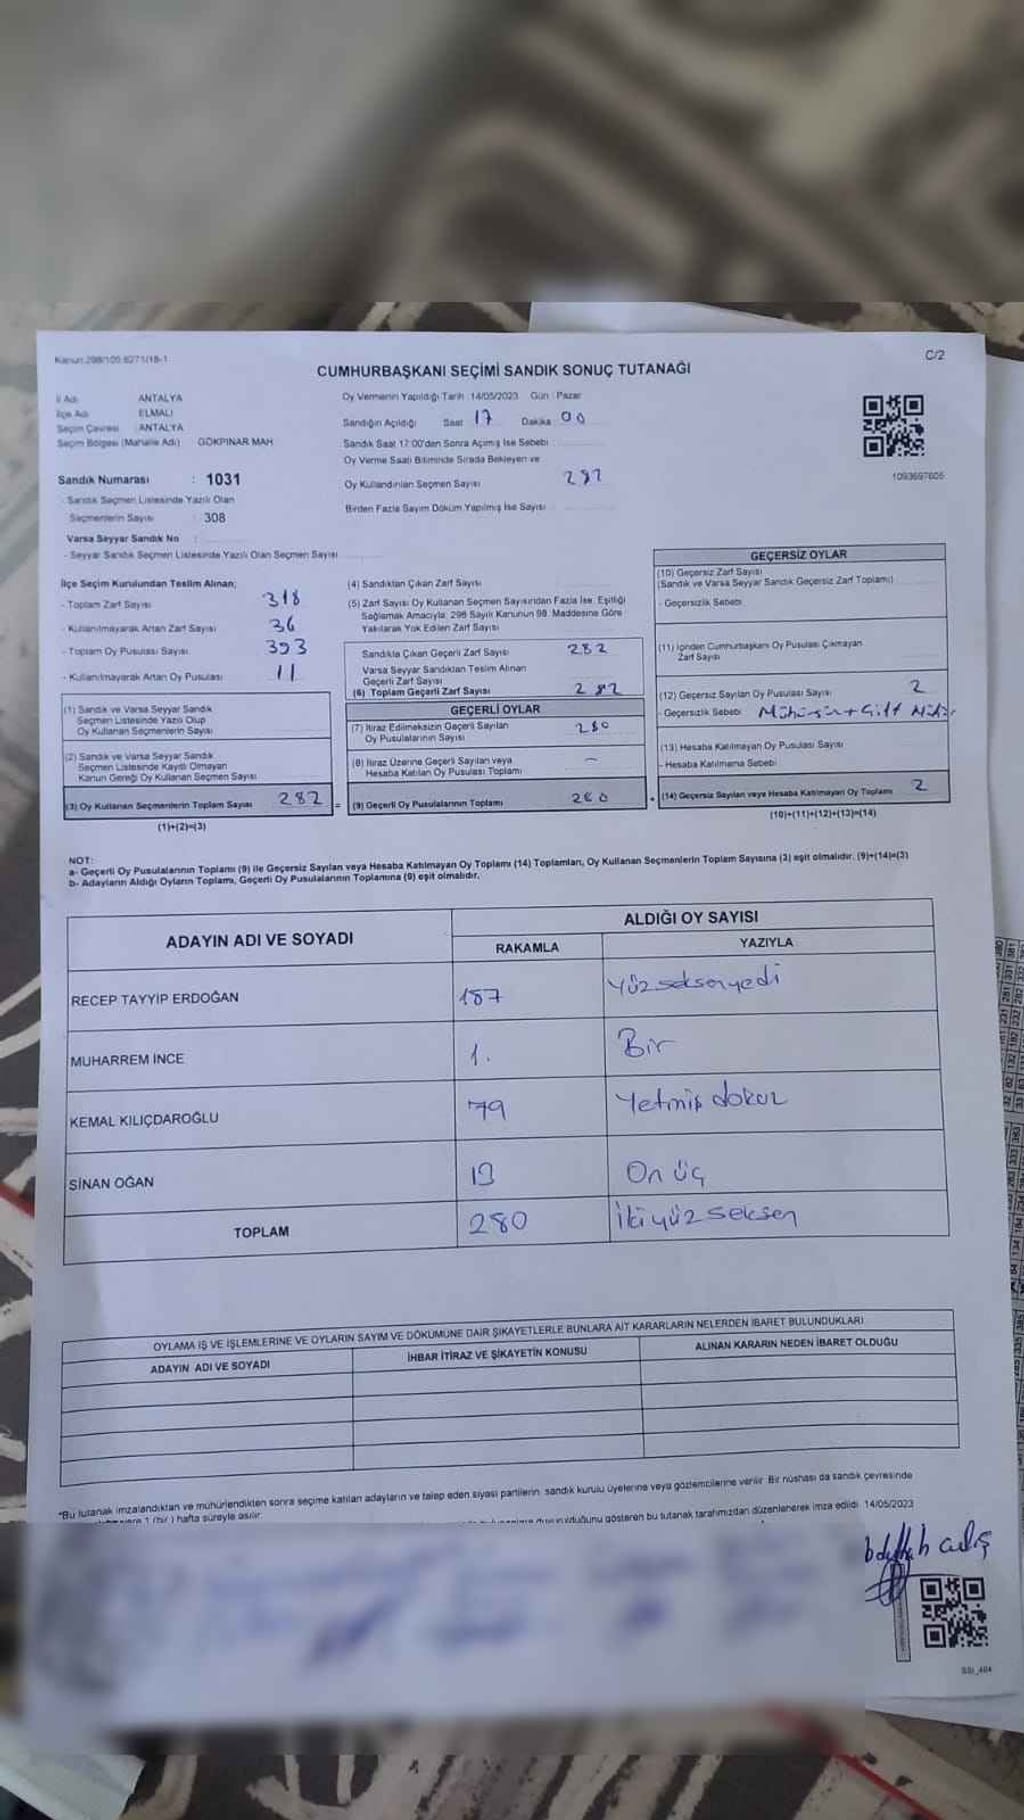 Kanun:298/105.6271/18-1
C/2
CUMHURBAŞKANI SEÇİMİ SANDIK SONUÇ TUTANAĞI
İl Adı ANTALYA
İlçe Adı ELMALI
Seçim Çevresi ANTALYA
Seçim Bölgesi (Mahalle Adı) GÖKPINAR MAH
Sandık Numarası : 1031
- Sandık Seçmen Listesinde Yazılı Olan
Seçmenlerin Sayısı 308
Varsa Seyyar Sandık No :
- Seyyar Sandık Seçmen Listesinde Yazılı Olan Seçmen Sayısı
Oy Vermenin Yapıldığı Tarih : 14/05/2023 Gün : Pazar
Sandığın Açıldığı Saat 17 Dakika 00
Sandık Saat 17:00'den Sonra Açılmış İse Sebebi
Oy Verme Saati Bitiminde Sırada Bekleyen ve
Oy Kullandırılan Seçmen Sayısı 282
Birden Fazla Sayım Döküm Yapılmış İse Sayısı
1093697605
İlçe Seçim Kurulundan Teslim Alınan;
- Toplam Zarf Sayısı 318
- Kullanılmayarak Artan Zarf Sayısı 36
- Toplam Oy Pusulası Sayısı 393
- Kullanılmayarak Artan Oy Pusulası 11
(1) Sandık ve Varsa Seyyar Sandık
Seçmen Listesinde Yazılı Olup
Oy Kullanan Seçmenlerin Sayısı
(2) Sandık ve Varsa Seyyar Sandık
Seçmen Listesinde Kayıtlı Olmayan
Kanun Gereği Oy Kullanan Seçmen Sayısı
(3) Oy Kullanan Seçmenlerin Toplam Sayısı 282 =
(1)+(2)=(3)
(4) Sandıktan Çıkan Zarf Sayısı
(5) Zarf Sayısı Oy Kullanan Seçmen Sayısından Fazla İse, Eşitliği
Sağlamak Amacıyla, 298 Sayılı Kanunun 98. Maddesine Göre
Yakılarak Yok Edilen Zarf Sayısı
Sandıkta Çıkan Geçerli Zarf Sayısı 282
Varsa Seyyar Sandıktan Teslim Alınan
Geçerli Zarf Sayısı
(6) Toplam Geçerli Zarf Sayısı 282
GEÇERLİ OYLAR
(7) İtiraz Edilmeksizin Geçerli Sayılan
Oy Pusulalarının Sayısı 280
(8) İtiraz Üzerine Geçerli Sayılan veya
Hesaba Katılan Oy Pusulası Toplamı –
(9) Geçerli Oy Pusulalarının Toplamı 280 +
GEÇERSİZ OYLAR
(10) Geçersiz Zarf Sayısı
(Sandık ve Varsa Seyyar Sandık Geçersiz Zarf Toplamı)
- Geçersizlik Sebebi
(11) İçinden Cumhurbaşkanı Oy Pusulası Çıkmayan
Zarf Sayısı
(12) Geçersiz Sayılan Oy Pusulası Sayısı 2
- Geçersizlik Sebebi Mühürsüz + Çift Mühür
(13) Hesaba Katılmayan Oy Pusulası Sayısı
- Hesaba Katılmama Sebebi
(14) Geçersiz Sayılan veya Hesaba Katılmayan Oy Toplamı 2
(10)+(11)+(12)+(13)=(14)
NOT:
a- Geçerli Oy Pusulalarının Toplamı (9) ile Geçersiz Sayılan veya Hesaba Katılmayan Oy Toplamı (14) Toplamları, Oy Kullanan Seçmenlerin Toplam Sayısına (3) eşit olmalıdır. (9)+(14)=(3)
b- Adayların Aldığı Oyların Toplamı, Geçerli Oy Pusulalarının Toplamına (9) eşit olmalıdır.
ADAYIN ADI VE SOYADI
ALDIĞI OY SAYISI
RAKAMLA YAZIYLA
RECEP TAYYİP ERDOĞAN 187 Yüzseksenyedi
MUHARREM İNCE 1. Bir
KEMAL KILIÇDAROĞLU 79 Yetmiş dokuz
SİNAN OĞAN 13 On üç
TOPLAM 280 İkiyüz seksen
OYLAMA İŞ VE İŞLEMLERİNE VE OYLARIN SAYIM VE DÖKÜMÜNE DAİR ŞİKAYETLERLE BUNLARA AİT KARARLARIN NELERDEN İBARET BULUNDUKLARI
ADAYIN ADI VE SOYADI İHBAR İTİRAZ VE ŞİKAYETİN KONUSU ALINAN KARARIN NEDEN İBARET OLDUĞU
*Bu tutanak imzalandıktan ve mühürlendikten sonra seçime katılan adayların ve talep eden siyasi partilerin, sandık kurulu üyelerine veya gözlemcilerine verilir. Bir nüshası da sandık çevresinde
1 (bir) hafta süreyle asılır.
olduğunu gösteren bu tutanak tarafımızdan düzenlenerek imza edildi. 14/05/2023